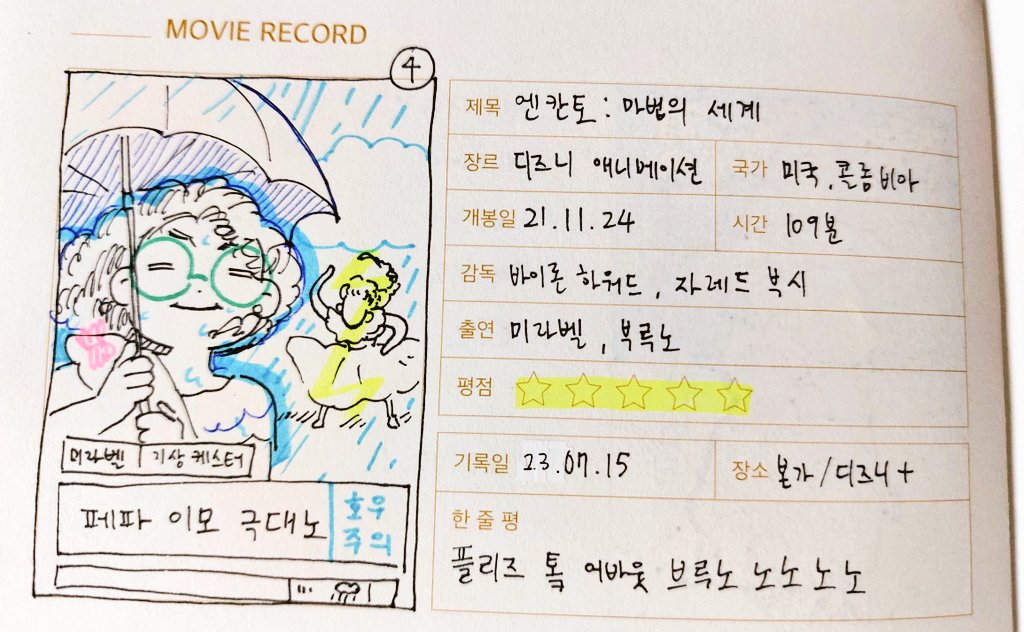 MOVIE RECORD
4
제목 엔칸토 : 마법의 세계
장르 디즈니 애니메이션 국가 미국, 콜롬비아
개봉일 21.11.24 시간 109분
감독 바이론 하워드, 자레드 부시
출연 미라벨, 부루노
평점
기록일 23.07.15 장소 본가/디즈니+
한 줄 평
플리즈 톡 어바웃 브루노 노노노노
미라벨 기상 케스터
페파 이모 극대노
호우
주의